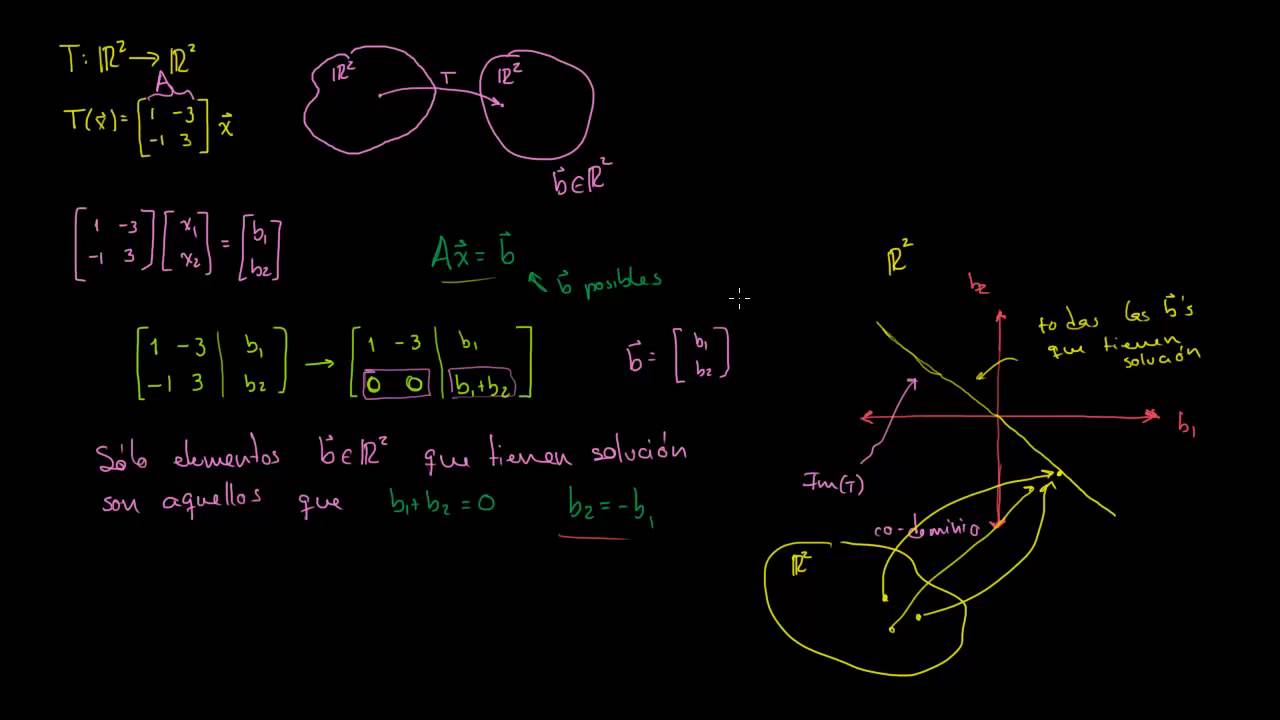 T: ℝ² → ℝ²
A
T(x⃗) = [1 -3; -1 3] x⃗
ℝ² T ℝ²
b⃗ ∈ ℝ²
[1 -3; -1 3] [x₁; x₂] = [b₁; b₂]
Ax⃗ = b⃗
b⃗ posibles
[1 -3 | b₁; -1 3 | b₂] → [1 -3 | b₁; 0 0 | b₁+b₂]
b⃗ = [b₁; b₂]
Sólo elementos b⃗ ∈ ℝ² que tienen solución
son aquellos que b₁+b₂ = 0 b₂ = -b₁
ℝ²
b₂
todas las b⃗'s
que tienen
solución
b₁
Im(T)
co-dominio
ℝ²